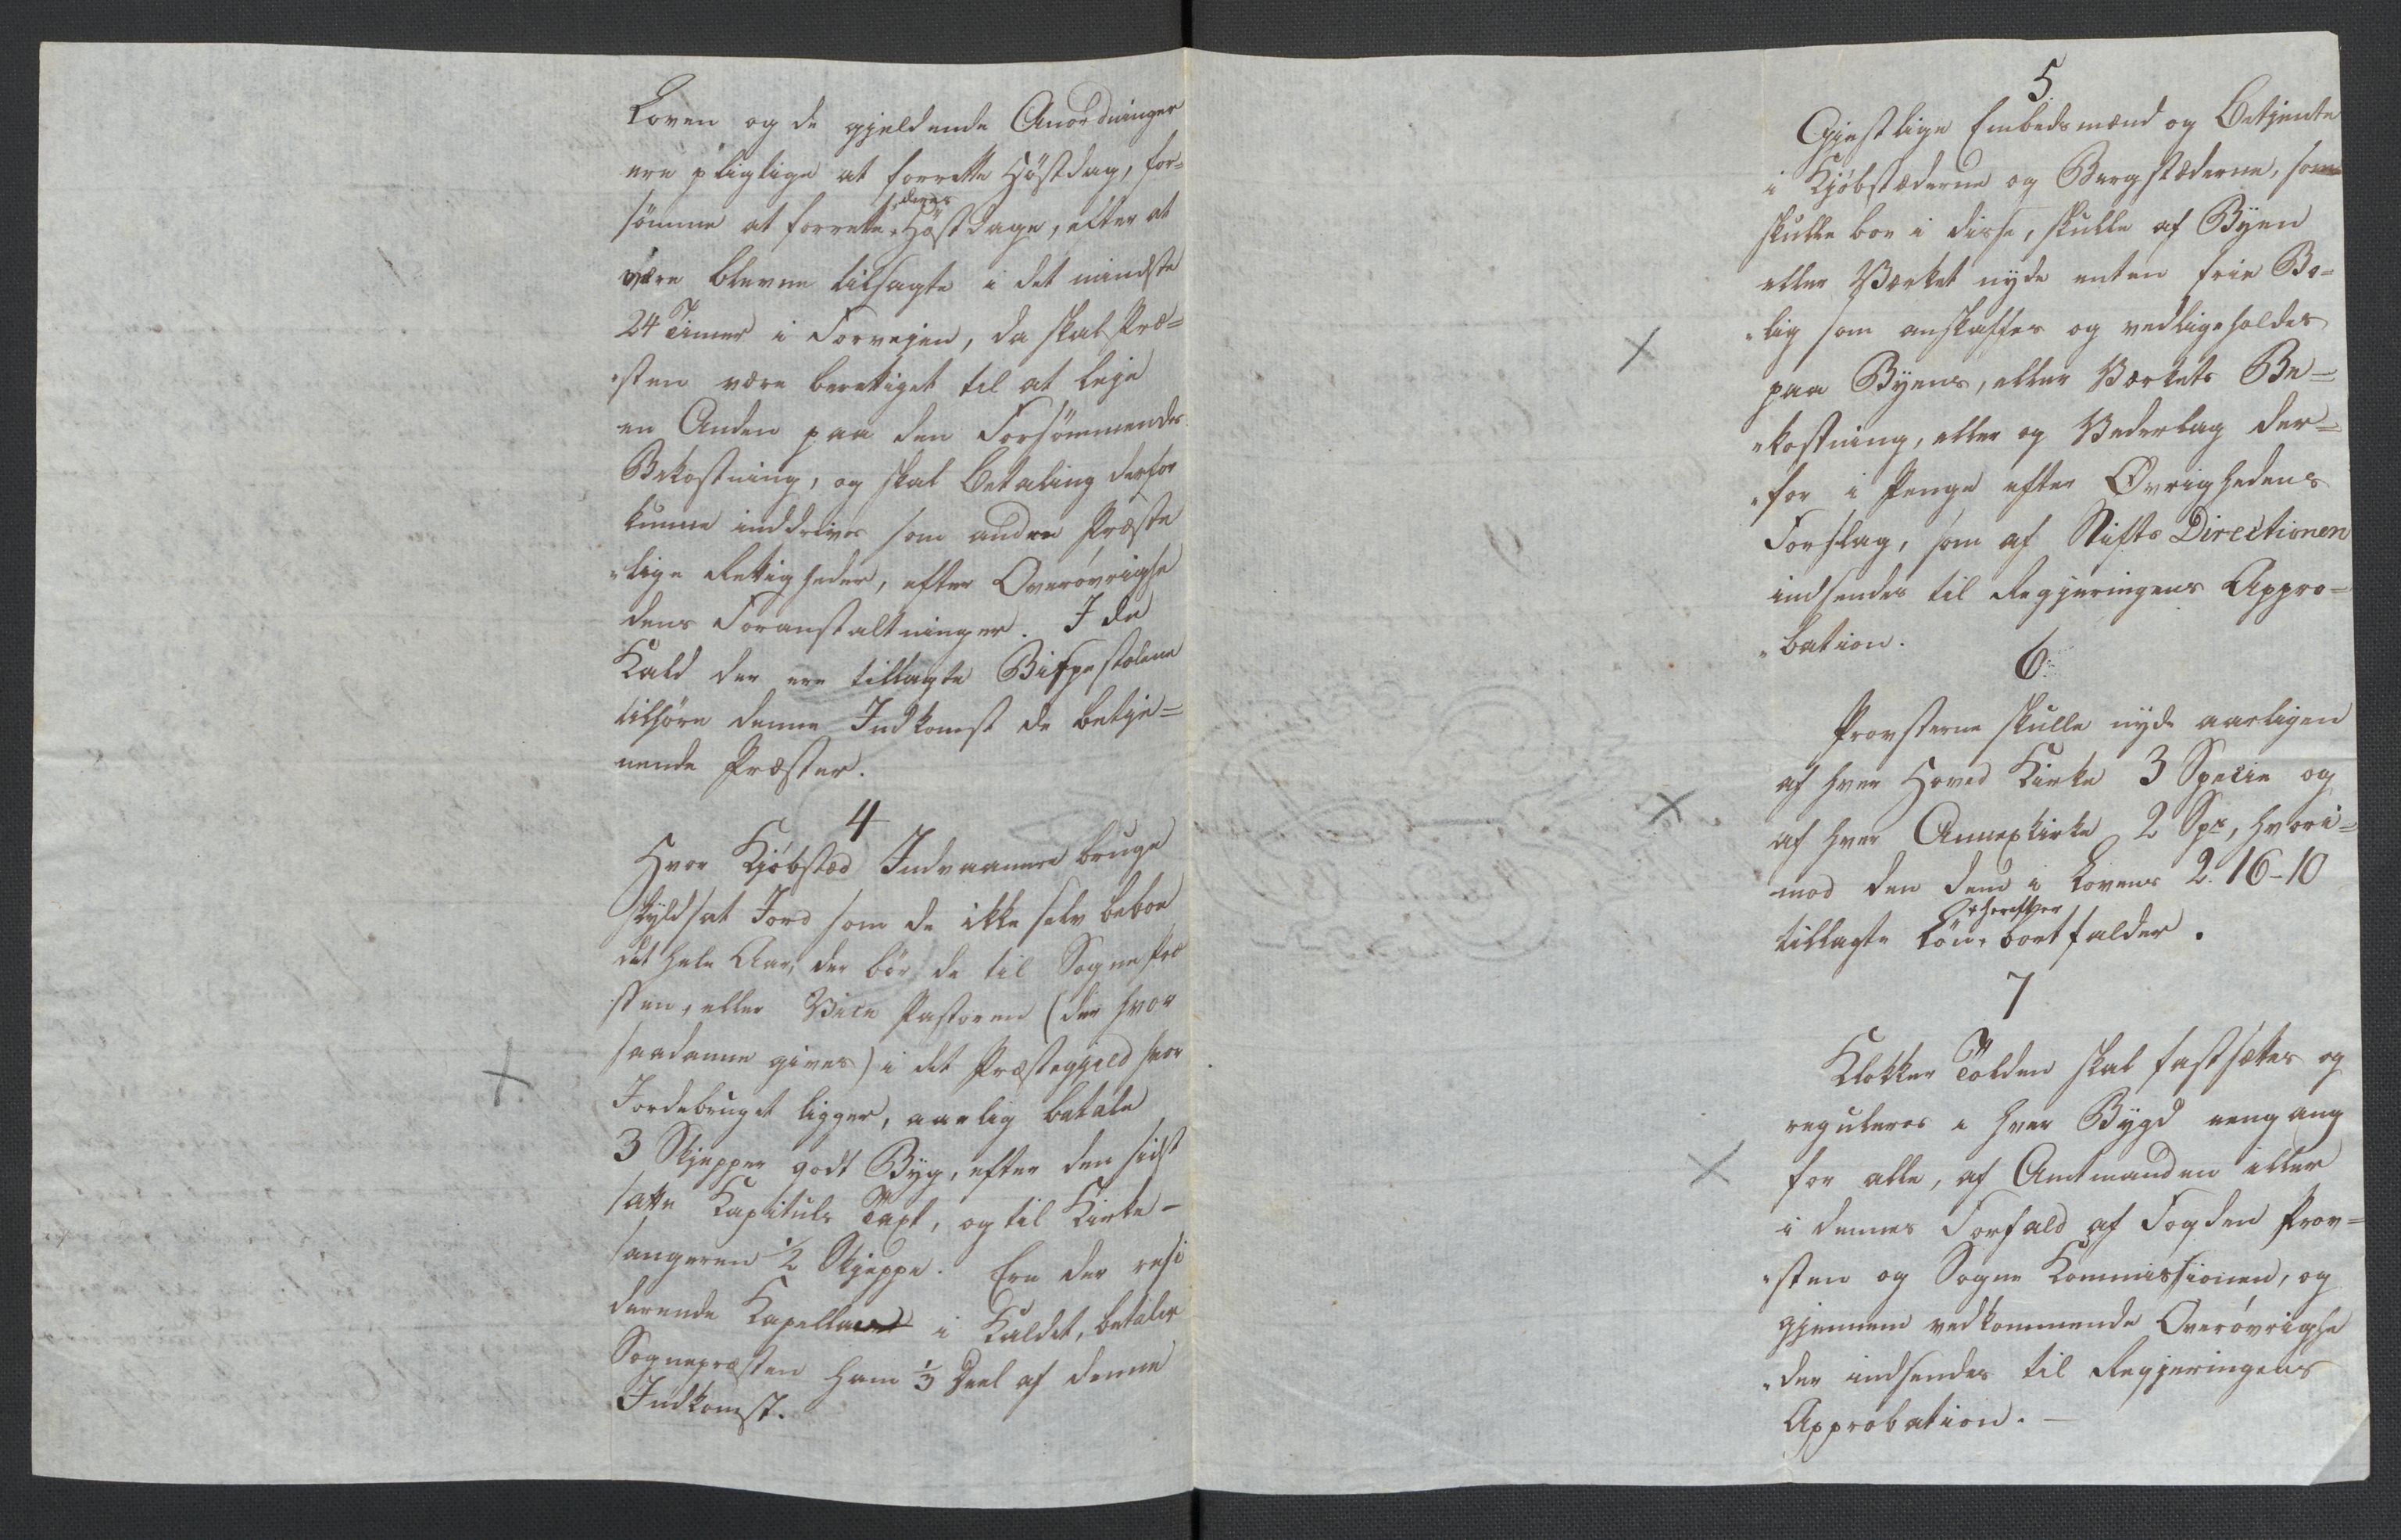 Loven og de gjeldende Anordninger
ere pligtige at forrette Høstdag, for=
sømme at forrette deres Høstdage, efter at
være blevne tilsagte i det mindste
24 Timer i Forvejen, da skal Præ=
„sten være berettiget til at leje
en Anden paa den Forsømmendes
Bekostning, og skal Betaling derfor
kunne inddrives som andre Præste
„lige Rettigheder, efter Overøvrighe
dens Foranstaltninger. I de
Kald der ere tillagte Bispestolene
tilhøre denne Indkomst de betje=
nende Præster.
4
Hvor Kjøbstæd Indvaanere bruge
skyldsat Jord som de ikke selv beboe
det hele Aar, der bør de til Sognepræ
„sten, eller Vice Pastoren (der hvor
saadanne gives) i det Præstegjeld hvor
Jordebruget ligger, aarlig betale
3 Skjepper godt Byg, efter den sidst
satte Kapituls Taxt, og til Kirke-
sangeren ½ Skjeppe. Ere der resi
derende Kapellan i Kaldet, betaler
Sognepræsten ham ⅓ Deel af denne
Indkomst.
5.
Gjestlige Embedsmænd og Betjente
i Kjøbstæderne og Bergstæderne, som
skulle boe i disse, skulle af Byen
eller Værket nyde enten frie Bo=
„lig som anskaffes og vedligeholdes
paa Byens, eller Værkets Be=
„kostning, eller og Vederlag der=
„for i Penge efter Øvrighedens
Forslag, som af Stifts Directionen
indsendes til Regjeringens Appro=
„bation.
6.
Provsterne skulle nyde aarligen
af hver Hoved Kirke 3 Specie og
af hver Annexkirke 2 Spe, hvori=
mod den dem i Lovens 2. 16-10
tillagte Løn, herefter bortfalder.
7
Klokker Tolden skal fastsættes og
reguleres i hver Bygd eengang
for alle, af Amtmanden eller
i dennes Forfald af Fogden Prov=
„sten og Sogne Kommissionen, og
gjennem vedkommende Overøvrighe
„der indsendes til Regjeringens
Approbation.-